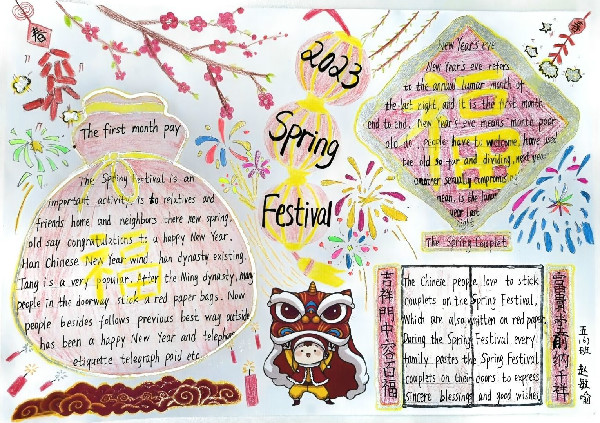 春
2023
Spring
Festival
The first month pay
The Spring Festival is an
important activity, is to relatives and
friends home and neighbors there new spring,
old say congratulations to a happy New Year.
Han Chinese New Year wind han dynasty existing.
Tang is a very popular. After the Ming dynasty, many
people in the doorway stick a red paper bags. Now
people besides follows previous best way outside
has been a happy New Year and telephone
etiquette telegraph paid etc
福
New Year's eve
New Year's eve refers
to the annual lunar month of
the last eight, and it is the first month
end to end. New Year's eve means
old do. people have to welcome
the old and dividing, next year
another
mean, is the lunar
year last
night
The Spring Couplet
吉祥門中
百福
The Chinese people love to stick
couplets on the Spring Festival,
Which are also written on red paper.
During the Spring Festival every
family pastes the Spring Festival
couplets on their doors to express
sincere blessings and good wishes
富貴
前納千祥
班